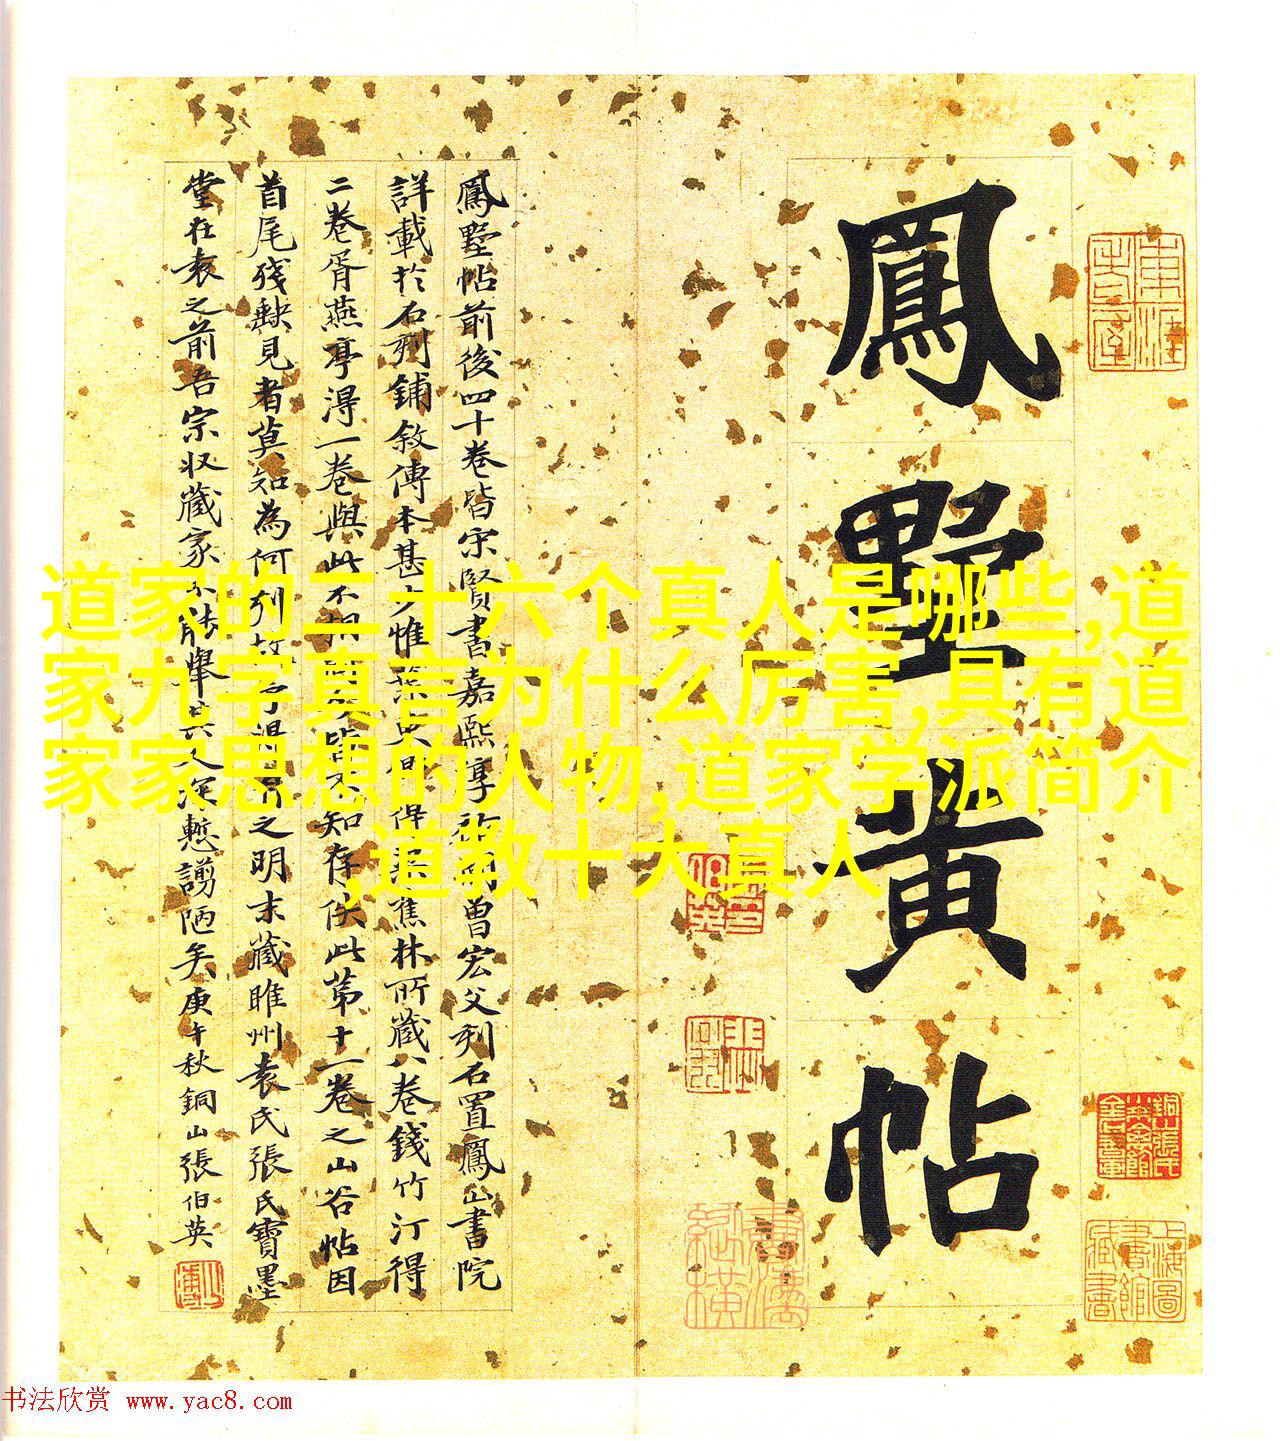 鳳墅黃帖
鳳墅帖前後四十卷皆宋賢書嘉熙淳祐間曾宏父刻石置鳳山書院
詳載於石刻鋪敘傳本甚少惟葉 得 蕉林所藏八卷錢竹汀得
二卷胥燕亭得一卷與此不相 皆不知存佚此第十一卷之山谷帖因
首尾殘缺見者莫知為何刻 得 之明末藏睢州袁氏張氏寶墨
堂在袁之前吾宗收藏家不能舉其人深慙謭陋矣庚午秋銅山張伯英
上海圖書館藏書
道家的三十六个真人是哪些,道
家九字真言为什么厉害,具有道
家家思想的人物,道家学派简介
,道教十大真人
书法欣赏 www.yac8.com